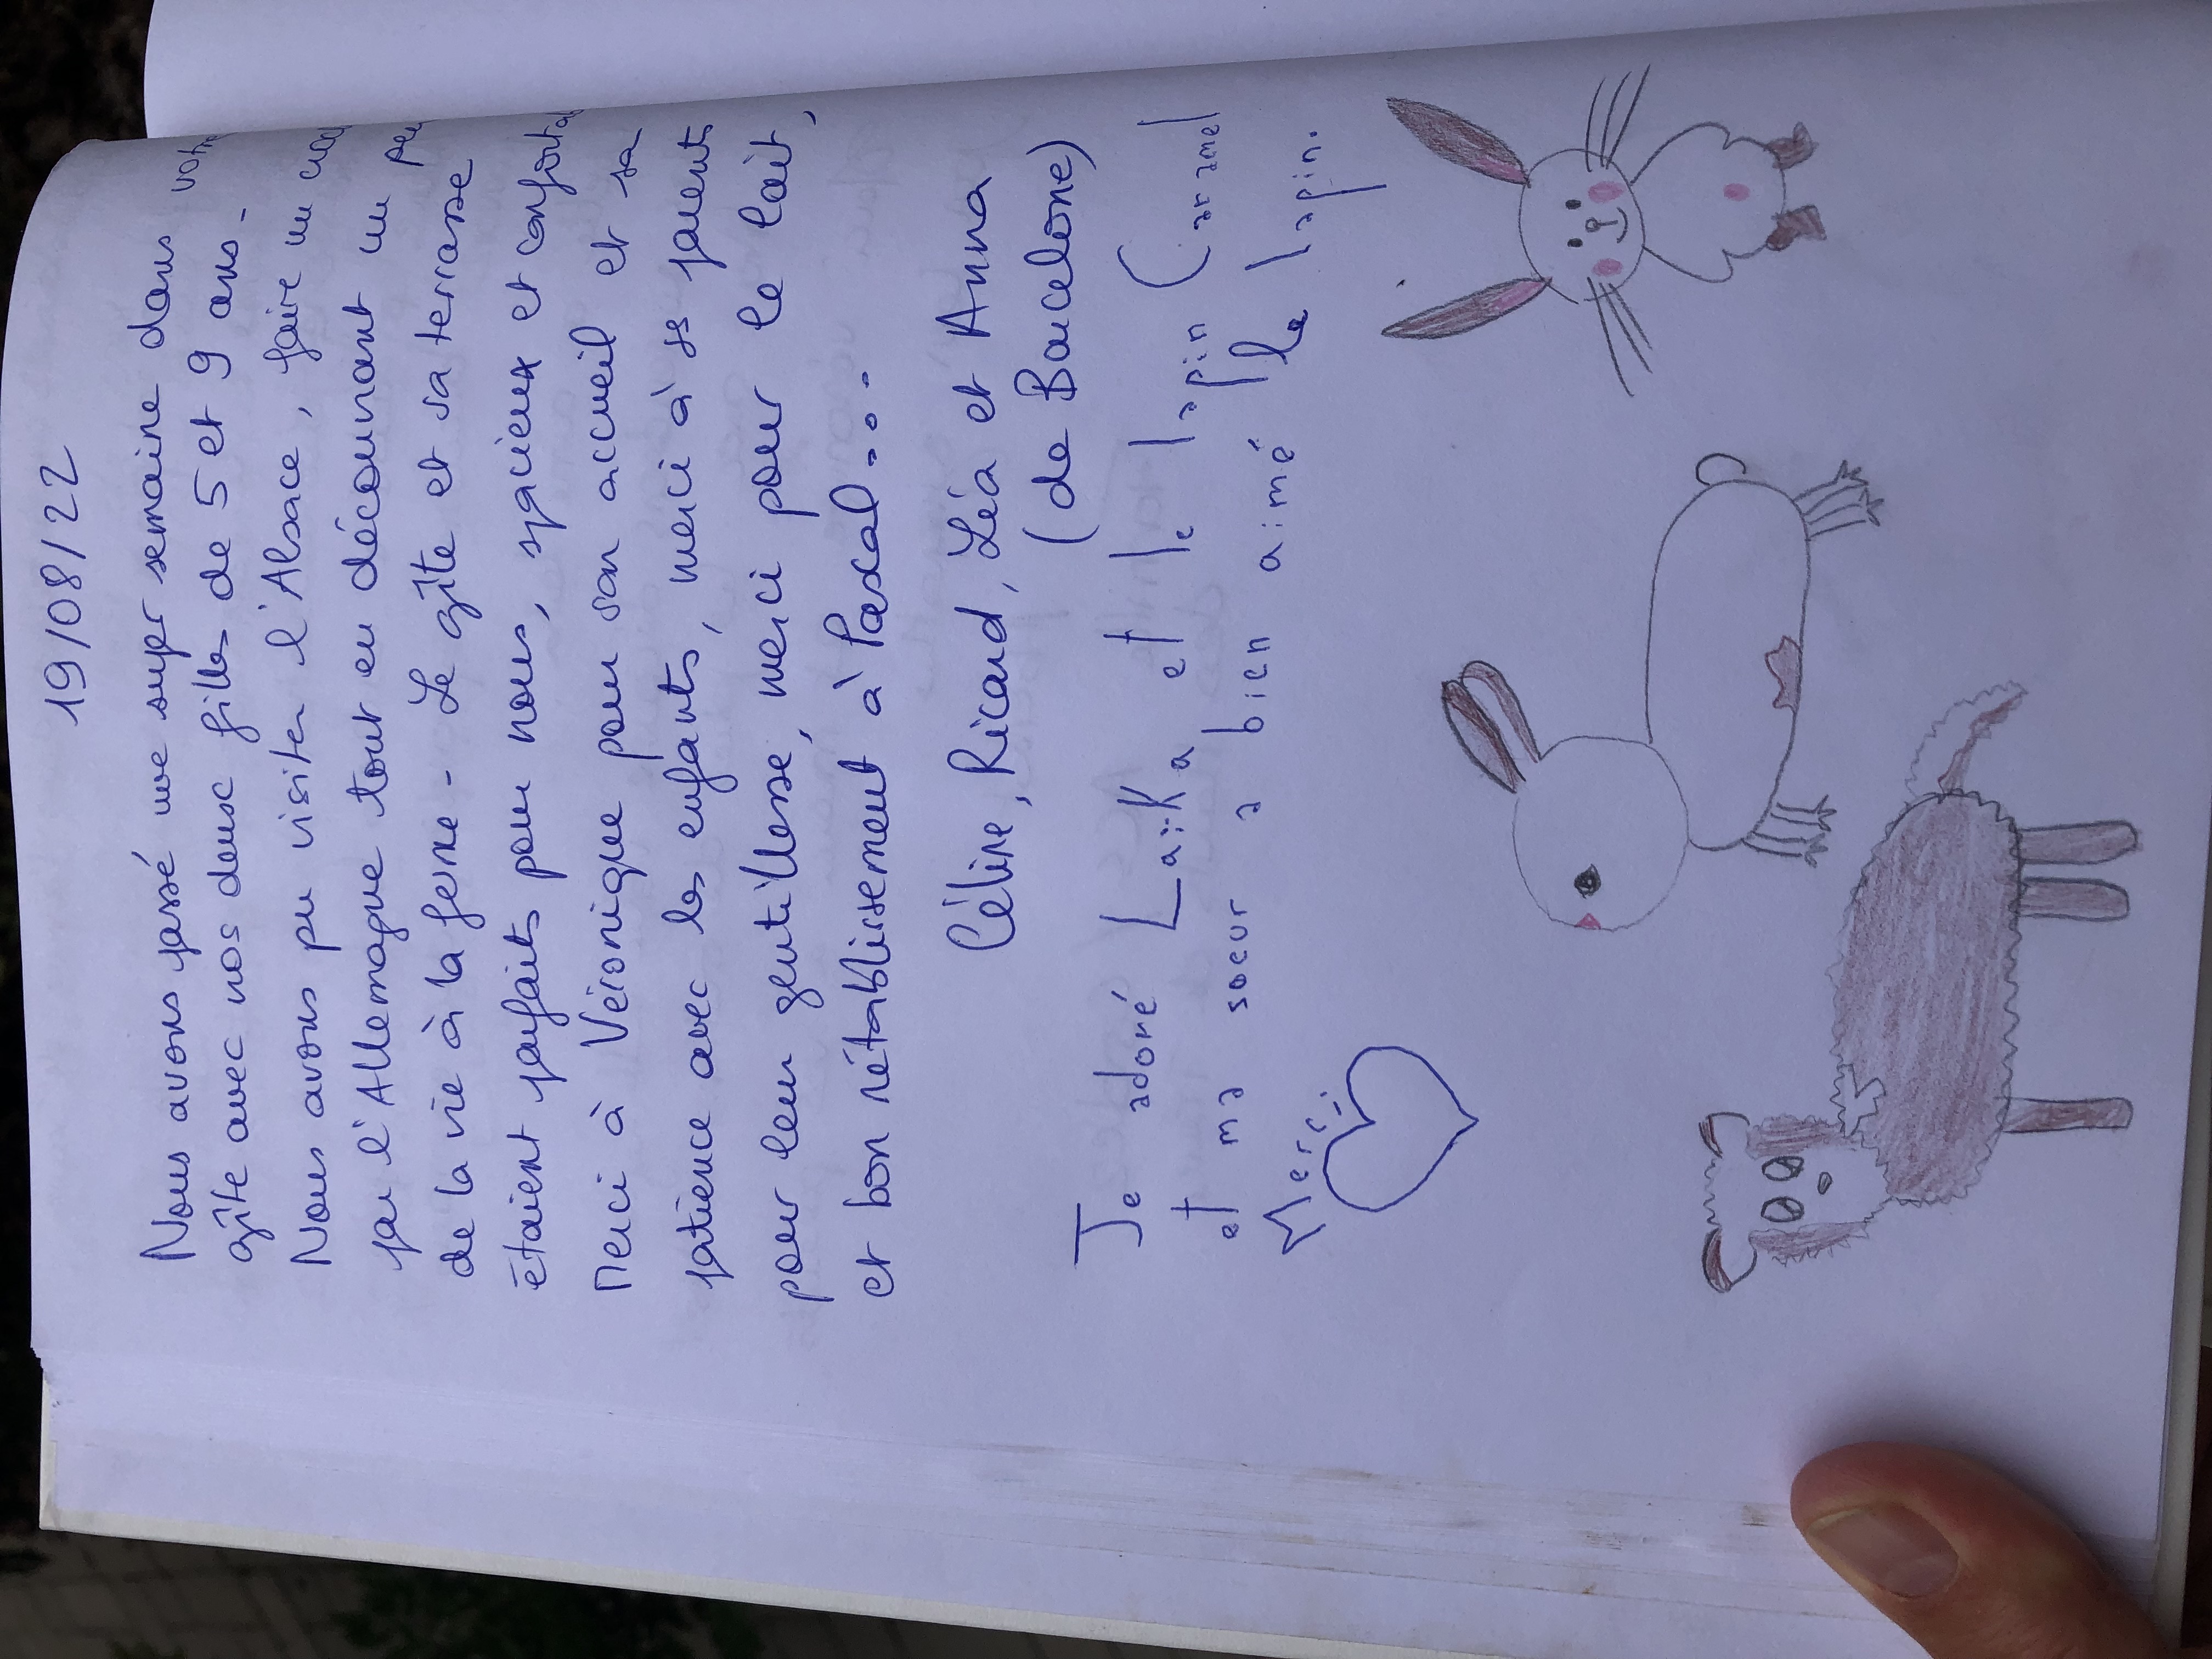 19/08/22
Nous avons passé une super semaine dans votre
gîte avec nos deux filles de 5 et 9 ans -
Nous avons pu visiter l'Alsace, faire un
par l'Allemagne tout en découvrant un peu
de la vie à la ferme - Le gîte et sa terrasse
étaient parfaits pour nous, spacieux et
Merci à Véronique pour son accueil et sa
patience avec les enfants, merci à ss parents
pour leur gentillesse, merci pour le lait,
et bon rétablissement à Pascal....
Céline, Ricard, Léa et Anna
(de Barcelone)
Je adoré Laïka et le lapin Caramel
et ma soeur a bien aimé le lapin.
Merci